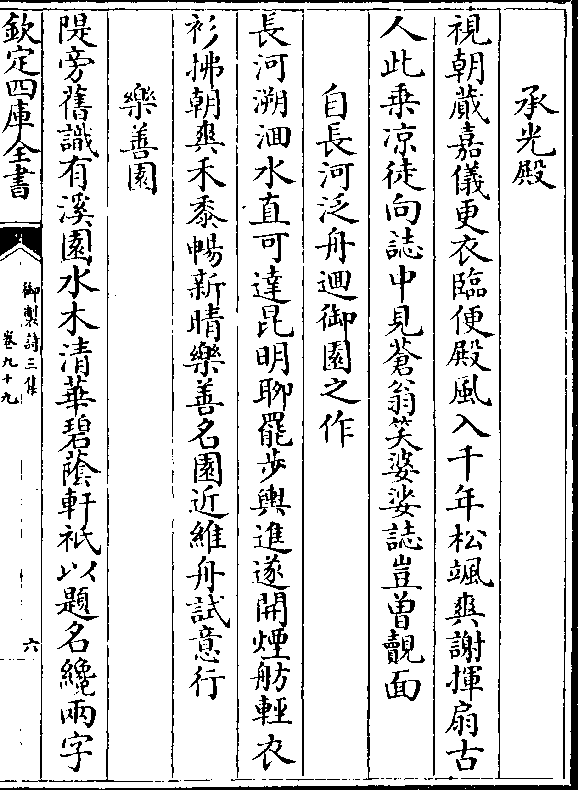 承光殿
視朝蕆嘉儀更衣臨便殿風入千年松颯爽謝揮扇古
人此乗凉徒向誌中見蒼翁笑婆娑誌豈曽覿面
自長河泛舟迴御園之作
長河溯洄水直可達昆明聊罷步輿進遂開煙舫輕衣
衫拂朝爽禾黍暢新晴樂善名園近維舟試意行
樂善園
隄旁舊識有溪園水木清華碧蔭軒祇以題名纔兩字
欽定四庫全書
御製詩三集
卷九十九
六